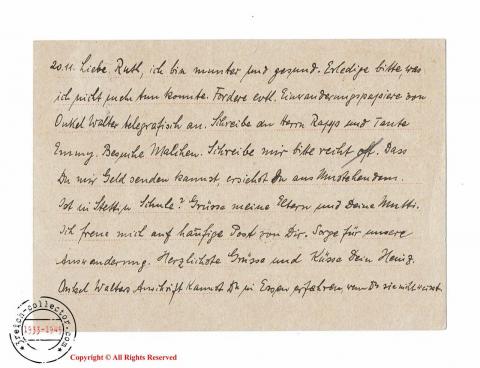 20.11. Liebe Ruth, ich bin munter und gesund. Erledige bitte, was
ich nicht mehr tun konnte. Fordere evtl. Einwanderungspapiere von
Onkel Walter telegrafisch an. Schreibe an Herrn und Tante
Emmy. Besuche Malchen. Schreibe mir bitte recht oft. Dass
Du mir Geld senden kannst, ersiehst Du aus Umstehendem.
Ist in Stettin Schule? Grüsse meine Eltern und Deine Mutti.
Ich freue mich auf häufige Post von Dir. Sorge für unsere
Auswanderung. Herzlichste Grüsse und Küsse Dein
Onkel Walters Anschrift kannst Du in Essen erfahren, wenn Du sie nicht weisst.
3reich-collector.com
1933-1945
Copyright © All Rights Reserved